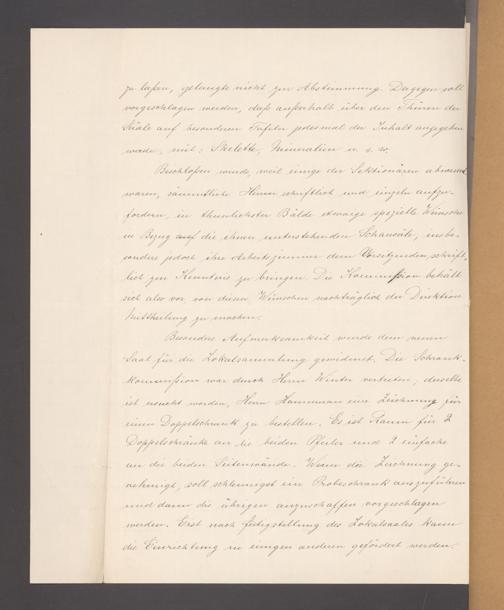 zu laßen, gelangte nicht zur Abstimmung. Dagegen soll
vorgeschlagen werden, daß außerhalb über den Thüren der
Säale auf besonderen Tafeln jedesmal der Inhalt angegeben
werde, mit: Skelette, Mineralien u. s. w.
Beschloßen wurde, weil einige der Sektionäre abwesend
waren, sämmtliche Herren schriftlich und einzeln aufzu-
fordern, in thunlichster Bälde etwaige spezielle Wünsche
in Bezug auf die ihnen unterstehenden Schausäle, insbe-
sondere jedoch ihre Arbeitszimmer dem Vorsitzenden schrift-
lich zur Kenntnis zu bringen. Die Kommission behält
sich also vor von diesen Wünschen nachträglich der Direktion
Mittheilung zu machen.
Besondere Aufmerksamkeit wurde dem neuen
Saal für die Lokalsammlung gewidmet. Die Schrank-
kommission war durch Herrn Winter vertreten, derselbe
ist ersucht worden, Herrn eine Zeichnung für
einen Doppelschrank zu bestellen. Es ist Raum für 2
Doppelschränke an die beiden Pfeiler und 2 einfache
an die beiden Seitenwände. Wenn die Zeichnung ge-
nehmigt, soll schleunigst ein Probeschrank auszuführen
und dann die übrigen anzuschaffen vorgeschlagen
werden. Erst nach fertigstellung des Lokalsaales kann
die Einrichtung in einigen anderen gefördert werden.